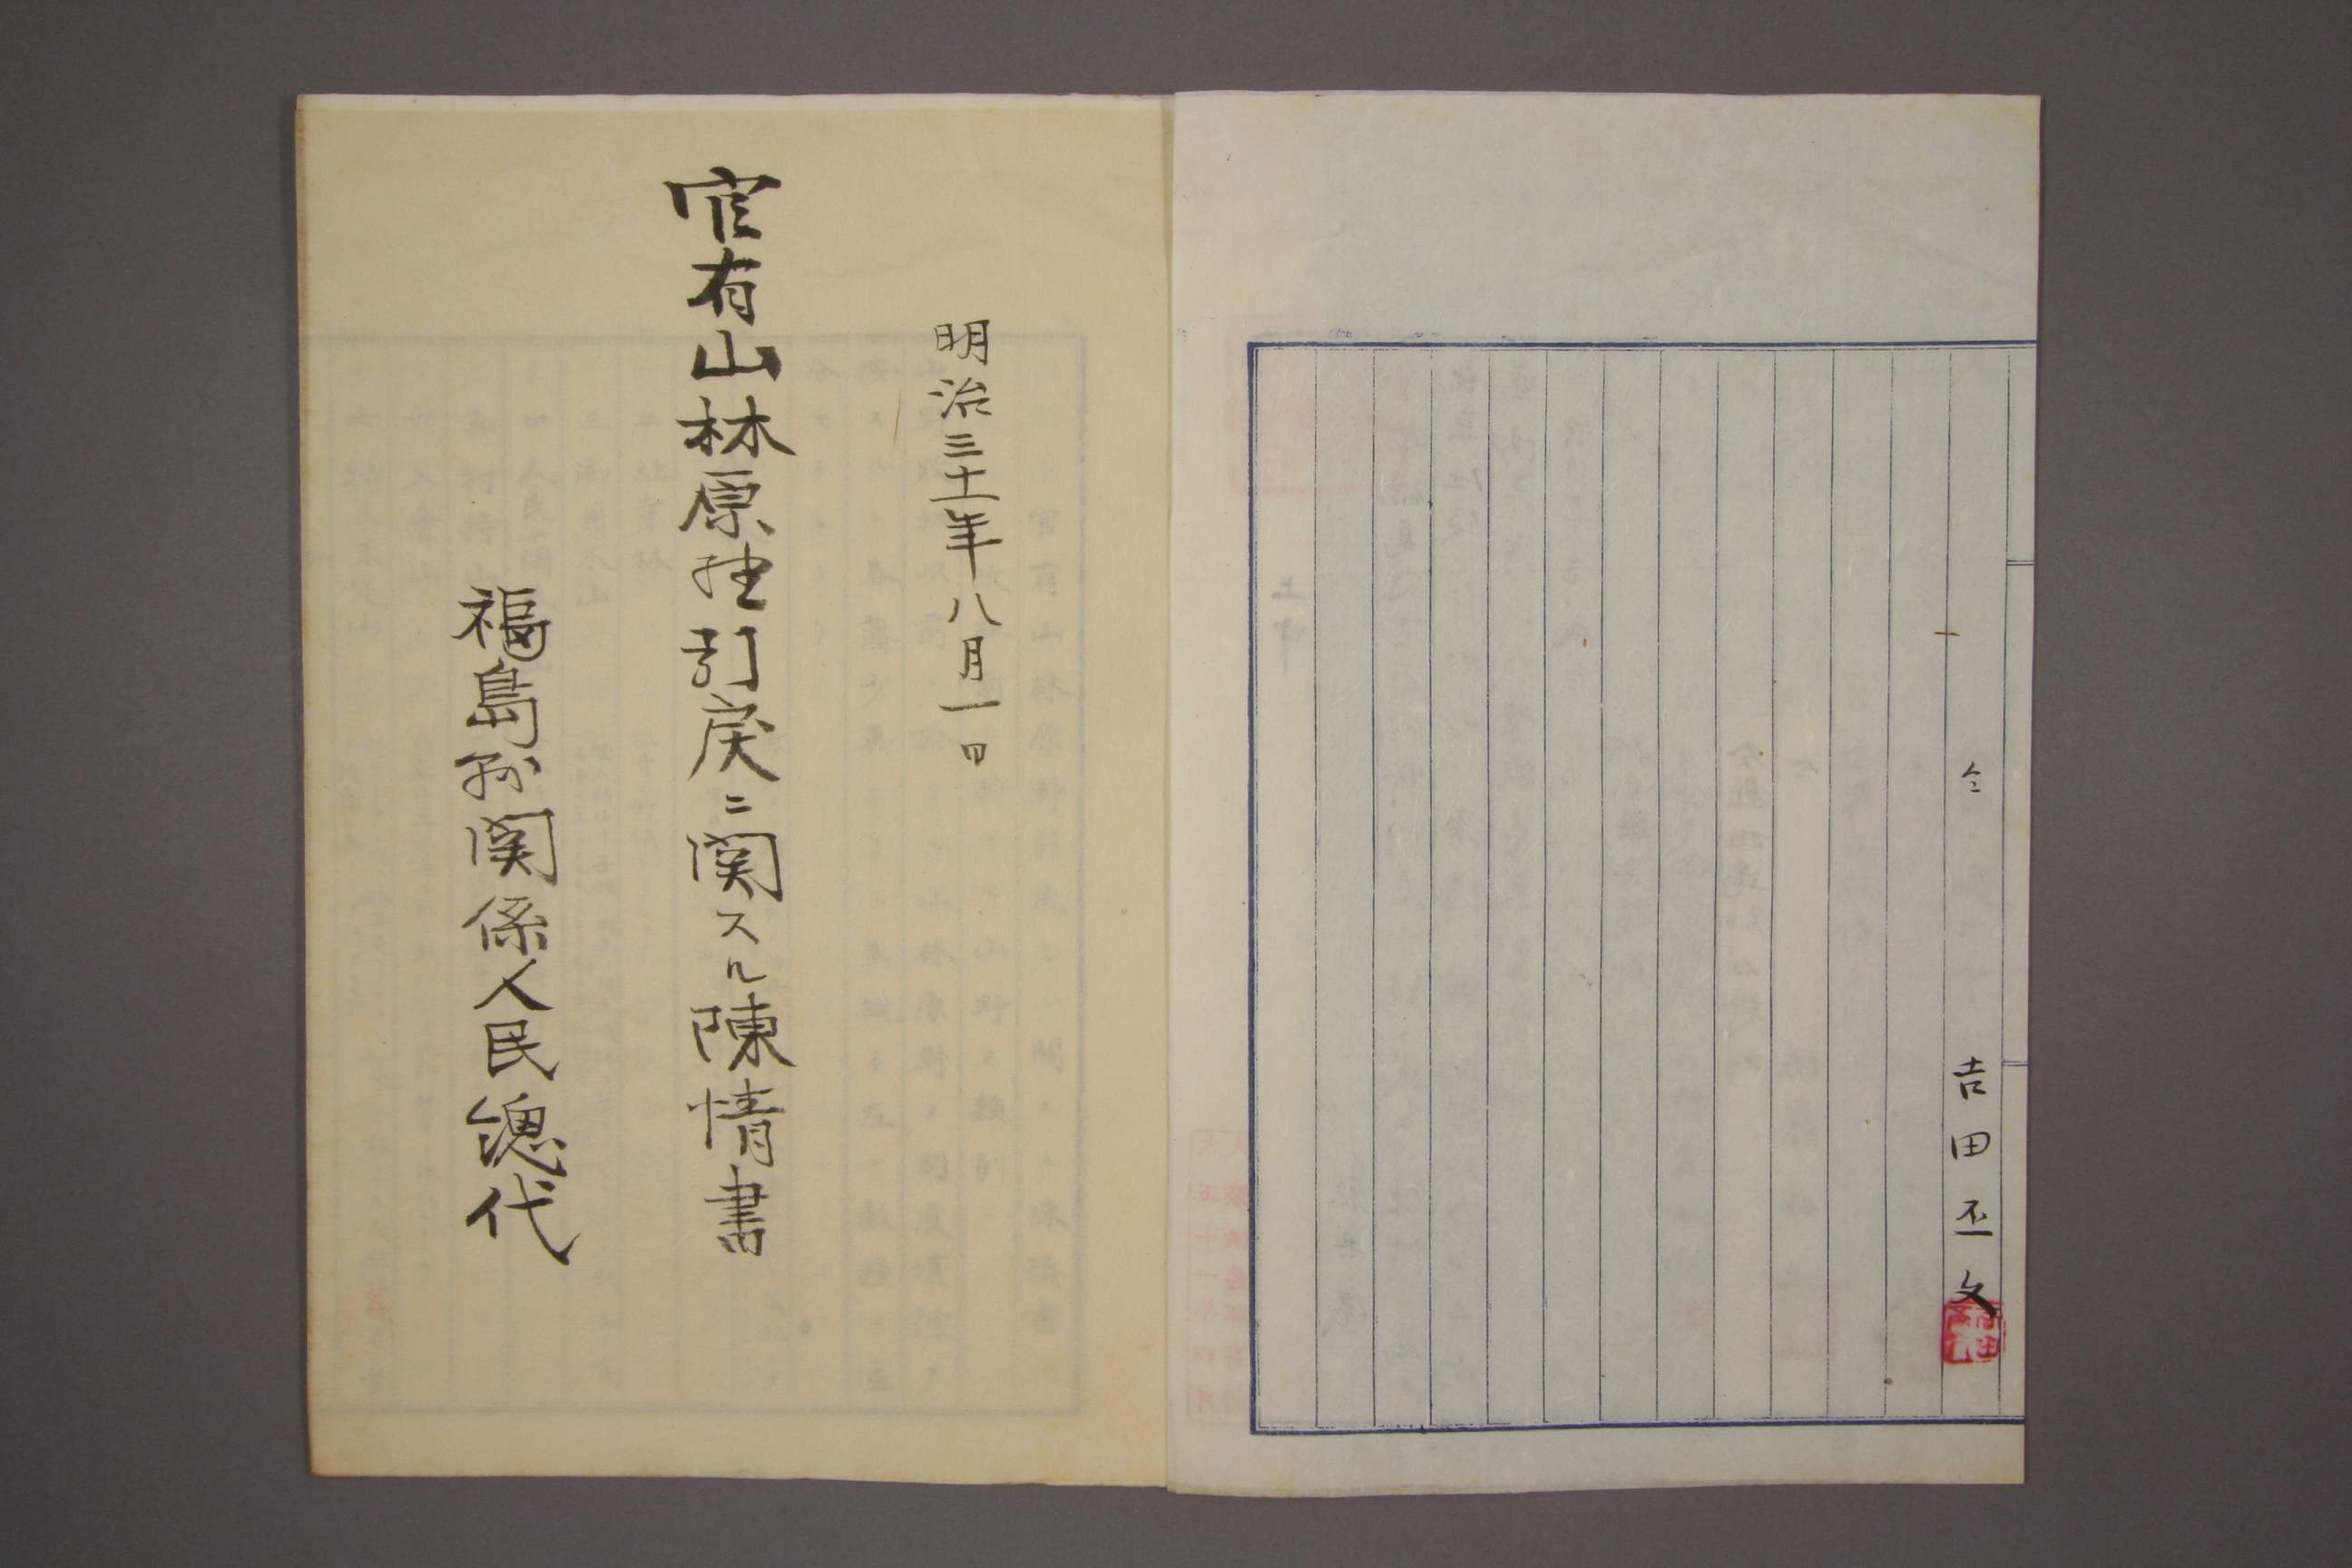 仝　吉田丕文
明治三十一年八月一日
官有山林原野引戻ニ関スル陳情書
福島県関係人民総代